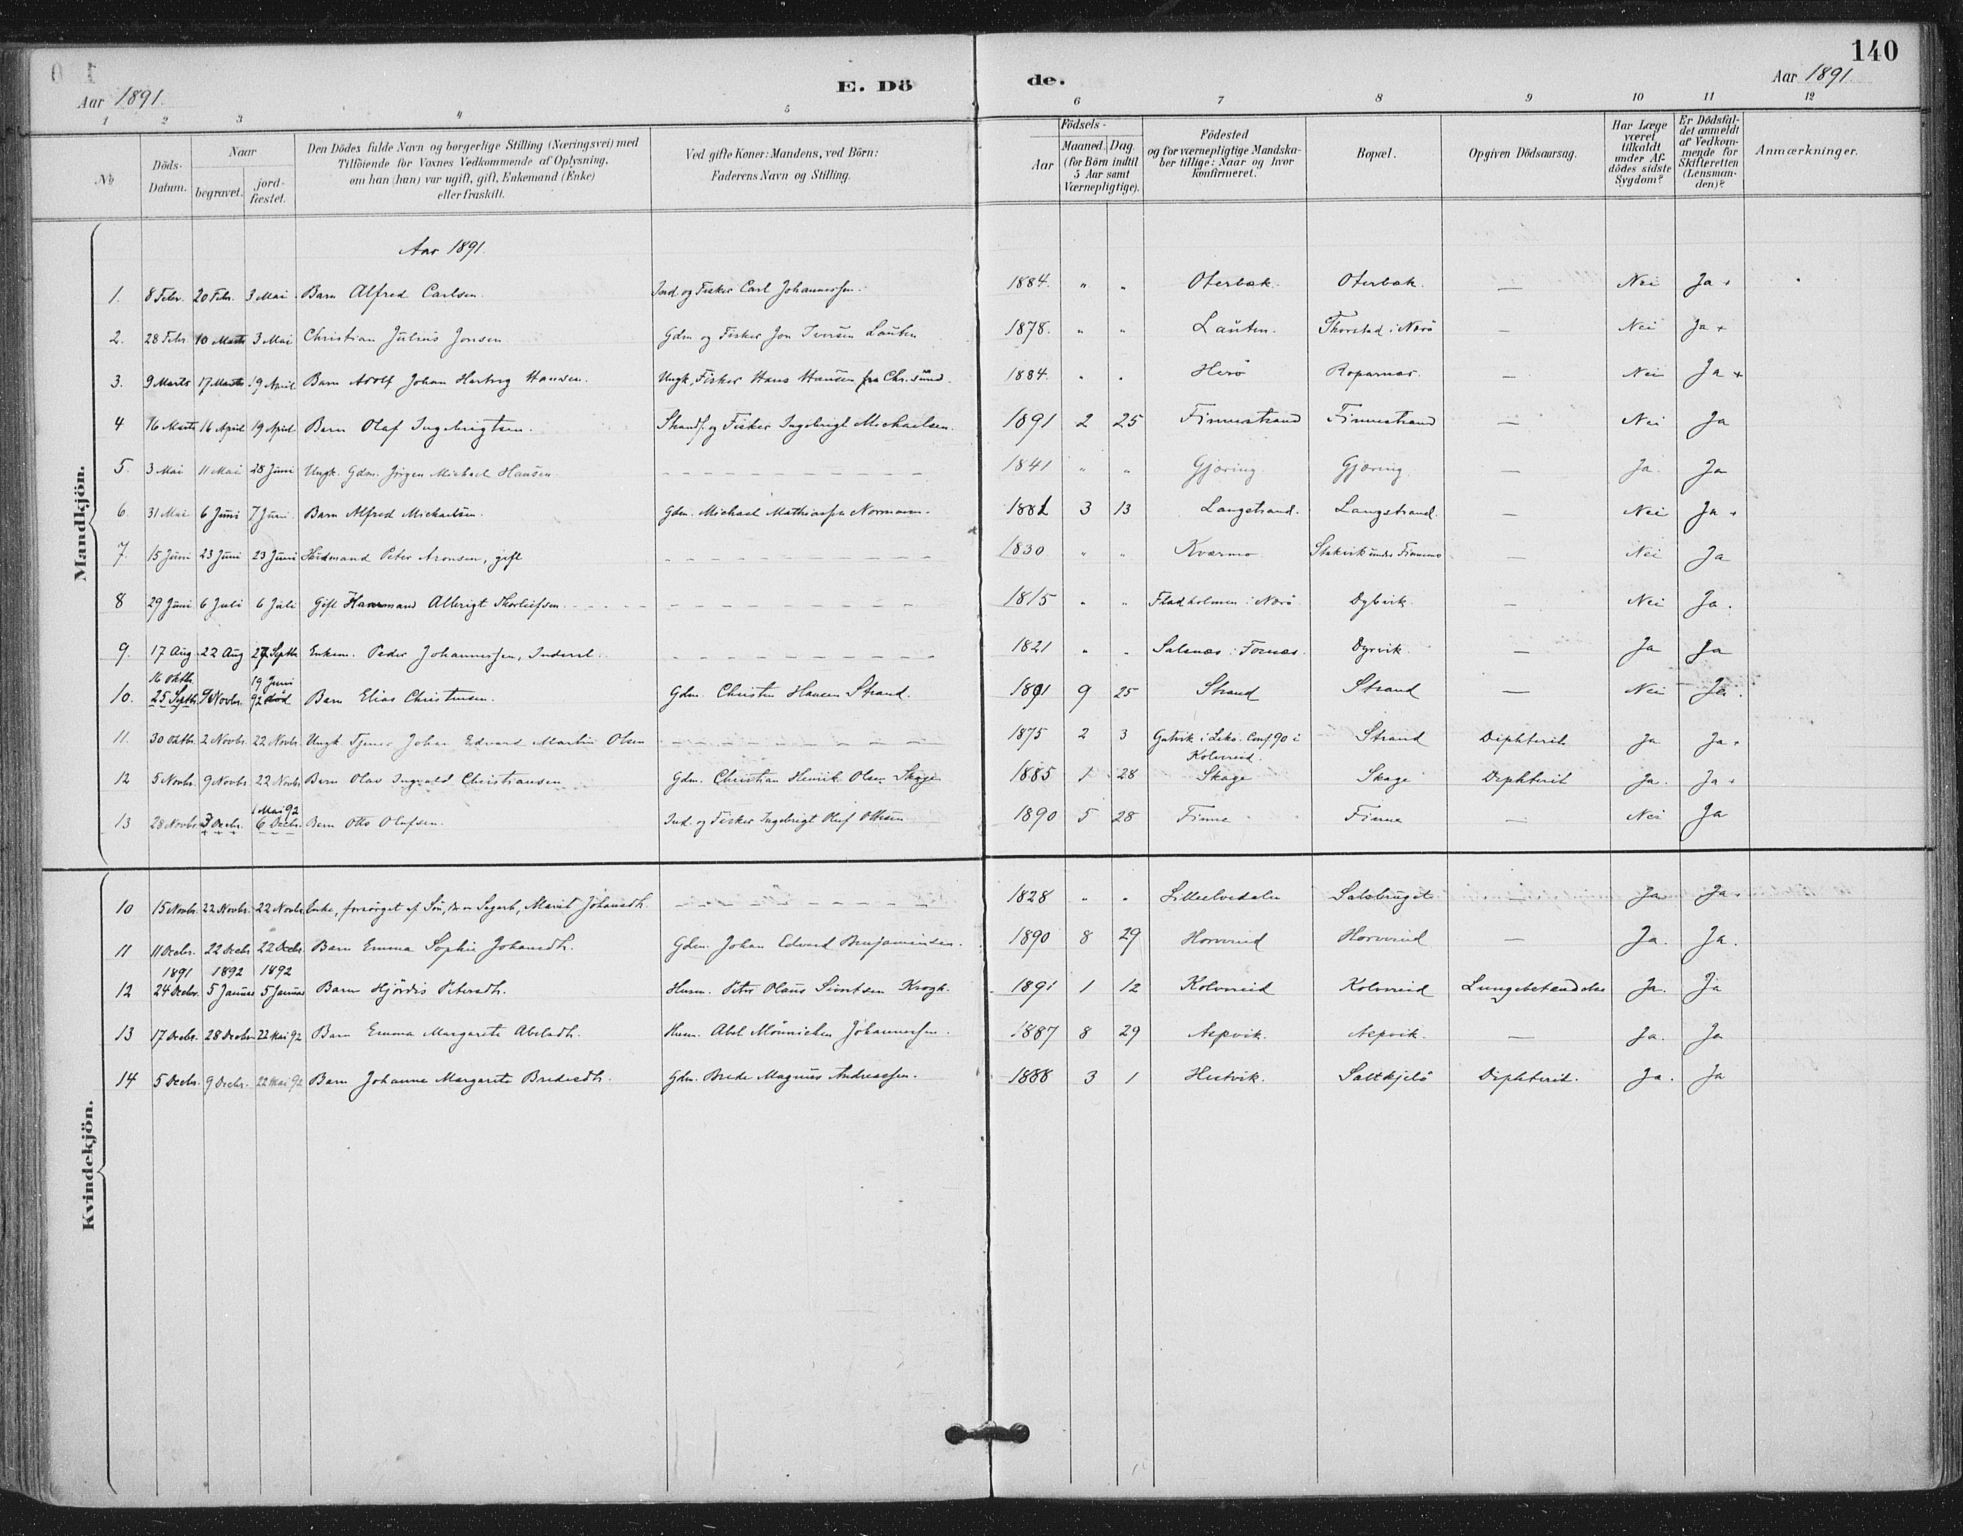 140
Aar 1891.
E. Dö
de.
Aar 1891.
1 2 3 4 5 6 7 8 9 10 11 12
№
Döds-Datum.
Naar
begravet.
jord-fæstet.
Den Dödes fulde Navn og borgerlige Stilling (Næringsvei) med
Tilföiende for Voxnes Vedkommende af Oplysning,
om han (hun) var ugift, gift, Enkemand (Enke)
eller fraskilt.
Ved gifte Koner: Mandens, ved Börn:
Faderens Navn og Stilling.
Födsels-
Aar
Maaned. Dag.
(for Börn indtil
5 Aar samt
Værnepligtige).
Födested
og for værnepligtige Mandska-
ber tillige: Naar og hvor
konfirmeret.
Bopæl.
Opgiven Dödsaarsag.
Har Læge
været
tilkaldt
under Af-
dödes sidste
Sygdom?
Er Dödsfal-
det anmeldt
af Vedkom-
mende for
Skifteretten
(Lensman-
den)?
Anmærkninger.
Mandkjön.
Aar 1891.
1. 8 Febr. 20 Febr. 3 Mai Barn Alfred Carlsen. Ind. og Fisker Carl Johannessen. 1884. " " Oterbæk. Oterbæk. — Nei Ja +
2. 28 Febr. 10 Marts 3 Mai Christian Julius Jonsen Gdm og Fisker Jon Iversen Lauten 1878. " " Lauten. Thorstad i Nærö — Nei Ja +
3. 9 Marts 17 Marts 19 April Barn Adolf Johan Hartvig Hansen. Ungk. Fisker Hans Hansen fra Chr.sund. 1884. " " Herö Roparnæs. — Nei Ja +
4 16 Marts 16 April 19 April Barn Olaf Ingebrigtsen. Strands. og Fisker Ingebrigt Michaelsen. 1891 2 25 Finnestrand Finnestrand — Nei Ja
5. 3 Mai 11 Mai 28 Juni Ungk. Gdm. Jörgen Michael Hansen. 1841 " " Gjæring Gjæring. — Ja. Ja
6. 31 Mai 6 Juni 7 Juni Barn Alfred Michaelsen. Gdm. Michael Mathiassen Normann. 1881 3 13 Langstrand. Langstrand. — Nei Ja +
7. 15 Juni 23 Juni 23 Juni Huidmand Peter Aronsen, gift 1830 " " Kværmo Nei Ja
8 29 Juni 6 Juli 6 Juli Gift Albrigt Thorleifsen. 1815 " " Fladholmen i Nærö Dybvik. — Nei Ja.
9. 17 Aug. 22 Aug 27 Septbr Enkem. Peder Johannessen, Inderst. 1821 " " Salsnæs i Fosnæs. Dyrvik. — Ja Ja
16 Oktbr. 19 Juni
10. 25 Septbr 9 Novbr. 92 Barn Elias Christensen. Gdm. Christen Hansen Strand. 1891 9 25 Strand Strand — Nei Ja.
11. 30 Oktbr. 2 Novbr. 22 Novbr. Ungk. Tjener Johan Edvard Martin Olsen 1875 2 3 Gutvik i Lekö. Conf 90 i Strand Diphterit Ja Ja +
Kolvereid.
12 5 Novbr. 9 Novbr 22 Novbr Barn Olav Ingvald Christiansen Gdm. Christian Henrik Olsen Skage 1885 1 28 Skage Skage Diphterit Ja. Ja +
1 Mai 92
13 28 Novbr. 3 Decbr. 6 Decbr. Barn Otto Olufsen. Ind. og Fisker Ingebrigt Oluf Ottesen 1890 5 28 Finne Finne — Nei Ja
Kvindekjön.
10 15 Novbr. 22 Novbr. 22 Novbr. Enke, forsörget af Sön, Marit Johansdtr. 1828 " " Lilleelvedalen Salsbruget — Ja Ja +
11 11 Decbr. 22 Decbr 22 Decbr Barn Emma Sophie Johansdtr. Gdm. Johan Edvard Benjaminsen. 1890 8 29 Horvereid Horvereid — Ja. Ja.
1891 1892 1892
12 24 Decbr. 5 Januar 5 Januar Barn Hjördis Petersdtr. Husm. Peter Olaus Sivertsen Krogh. 1891 1 12 Kolvereid Kolvereid Lungebetændelse Ja. Ja
13 17 Decbr. 28 Decbr. 22 Mai 92 Barn Emma Margarete Abelsdtr. Husm. Abel Mönnichen Johannessen. 1887 8 29 Aspvik. Aspvik. — Ja. Ja
14 5 Decbr. 9 Decbr. 22 Mai 92 Barn Johanna Margarete Bredesdtr. Gdm. Brede Magnus Andreassen. 1888 3 1 Hestvik. Saltkjelö Diphterit. Ja. Ja